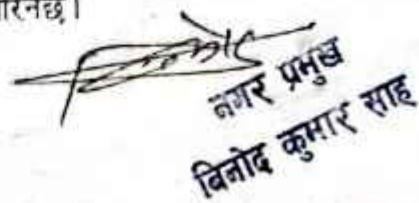 गरिनेछ।
नगर प्रमुख
बिनोद कुमार साह